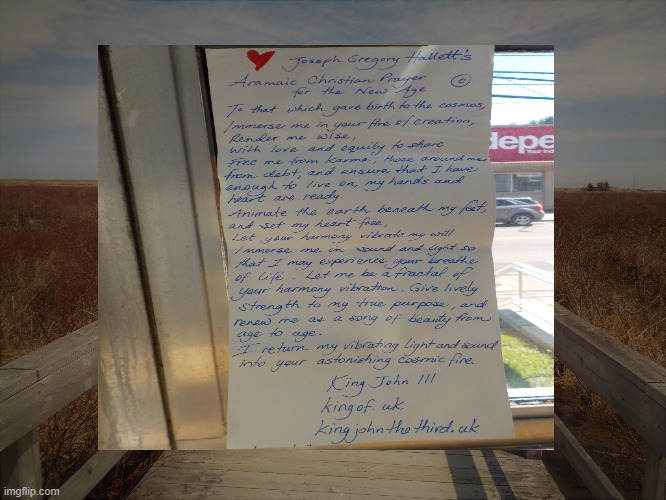 Joseph Gregory Hallett's
Aramaic Christian Prayer ©
for the New Age
To that which gave birth to the cosmos,
Immerse me in your fire of creation,
Render me wise,
with love and equity to share
Free me from karma, those around me
from debt, and ensure that I have
enough to live on, my hands and
heart are ready.
Animate the earth beneath my feet,
and set my heart free,
Let your harmony vibrate my will
Immerse me in sound and light so
that I may experience your breathe
of life. Let me be a fractal of
your harmony vibration. Give lively
strength to my true purpose, and
renew me as a song of beauty from
age to age.
I return my vibrating light and sound
into your astonishing cosmic fire.
King John III
kingof.uk
kingjohnthethird.uk
depe
imgflip.com